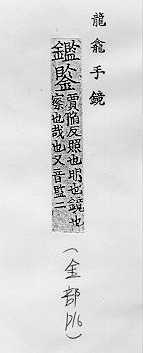 龍龕手鏡
鑑鑒
賈陷反照也形也鏡也
察也哉也又音監二
(金部 p16)